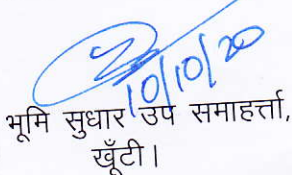 10/10/20
भूमि सुधार उप समाहर्त्ता,
खूँटी।